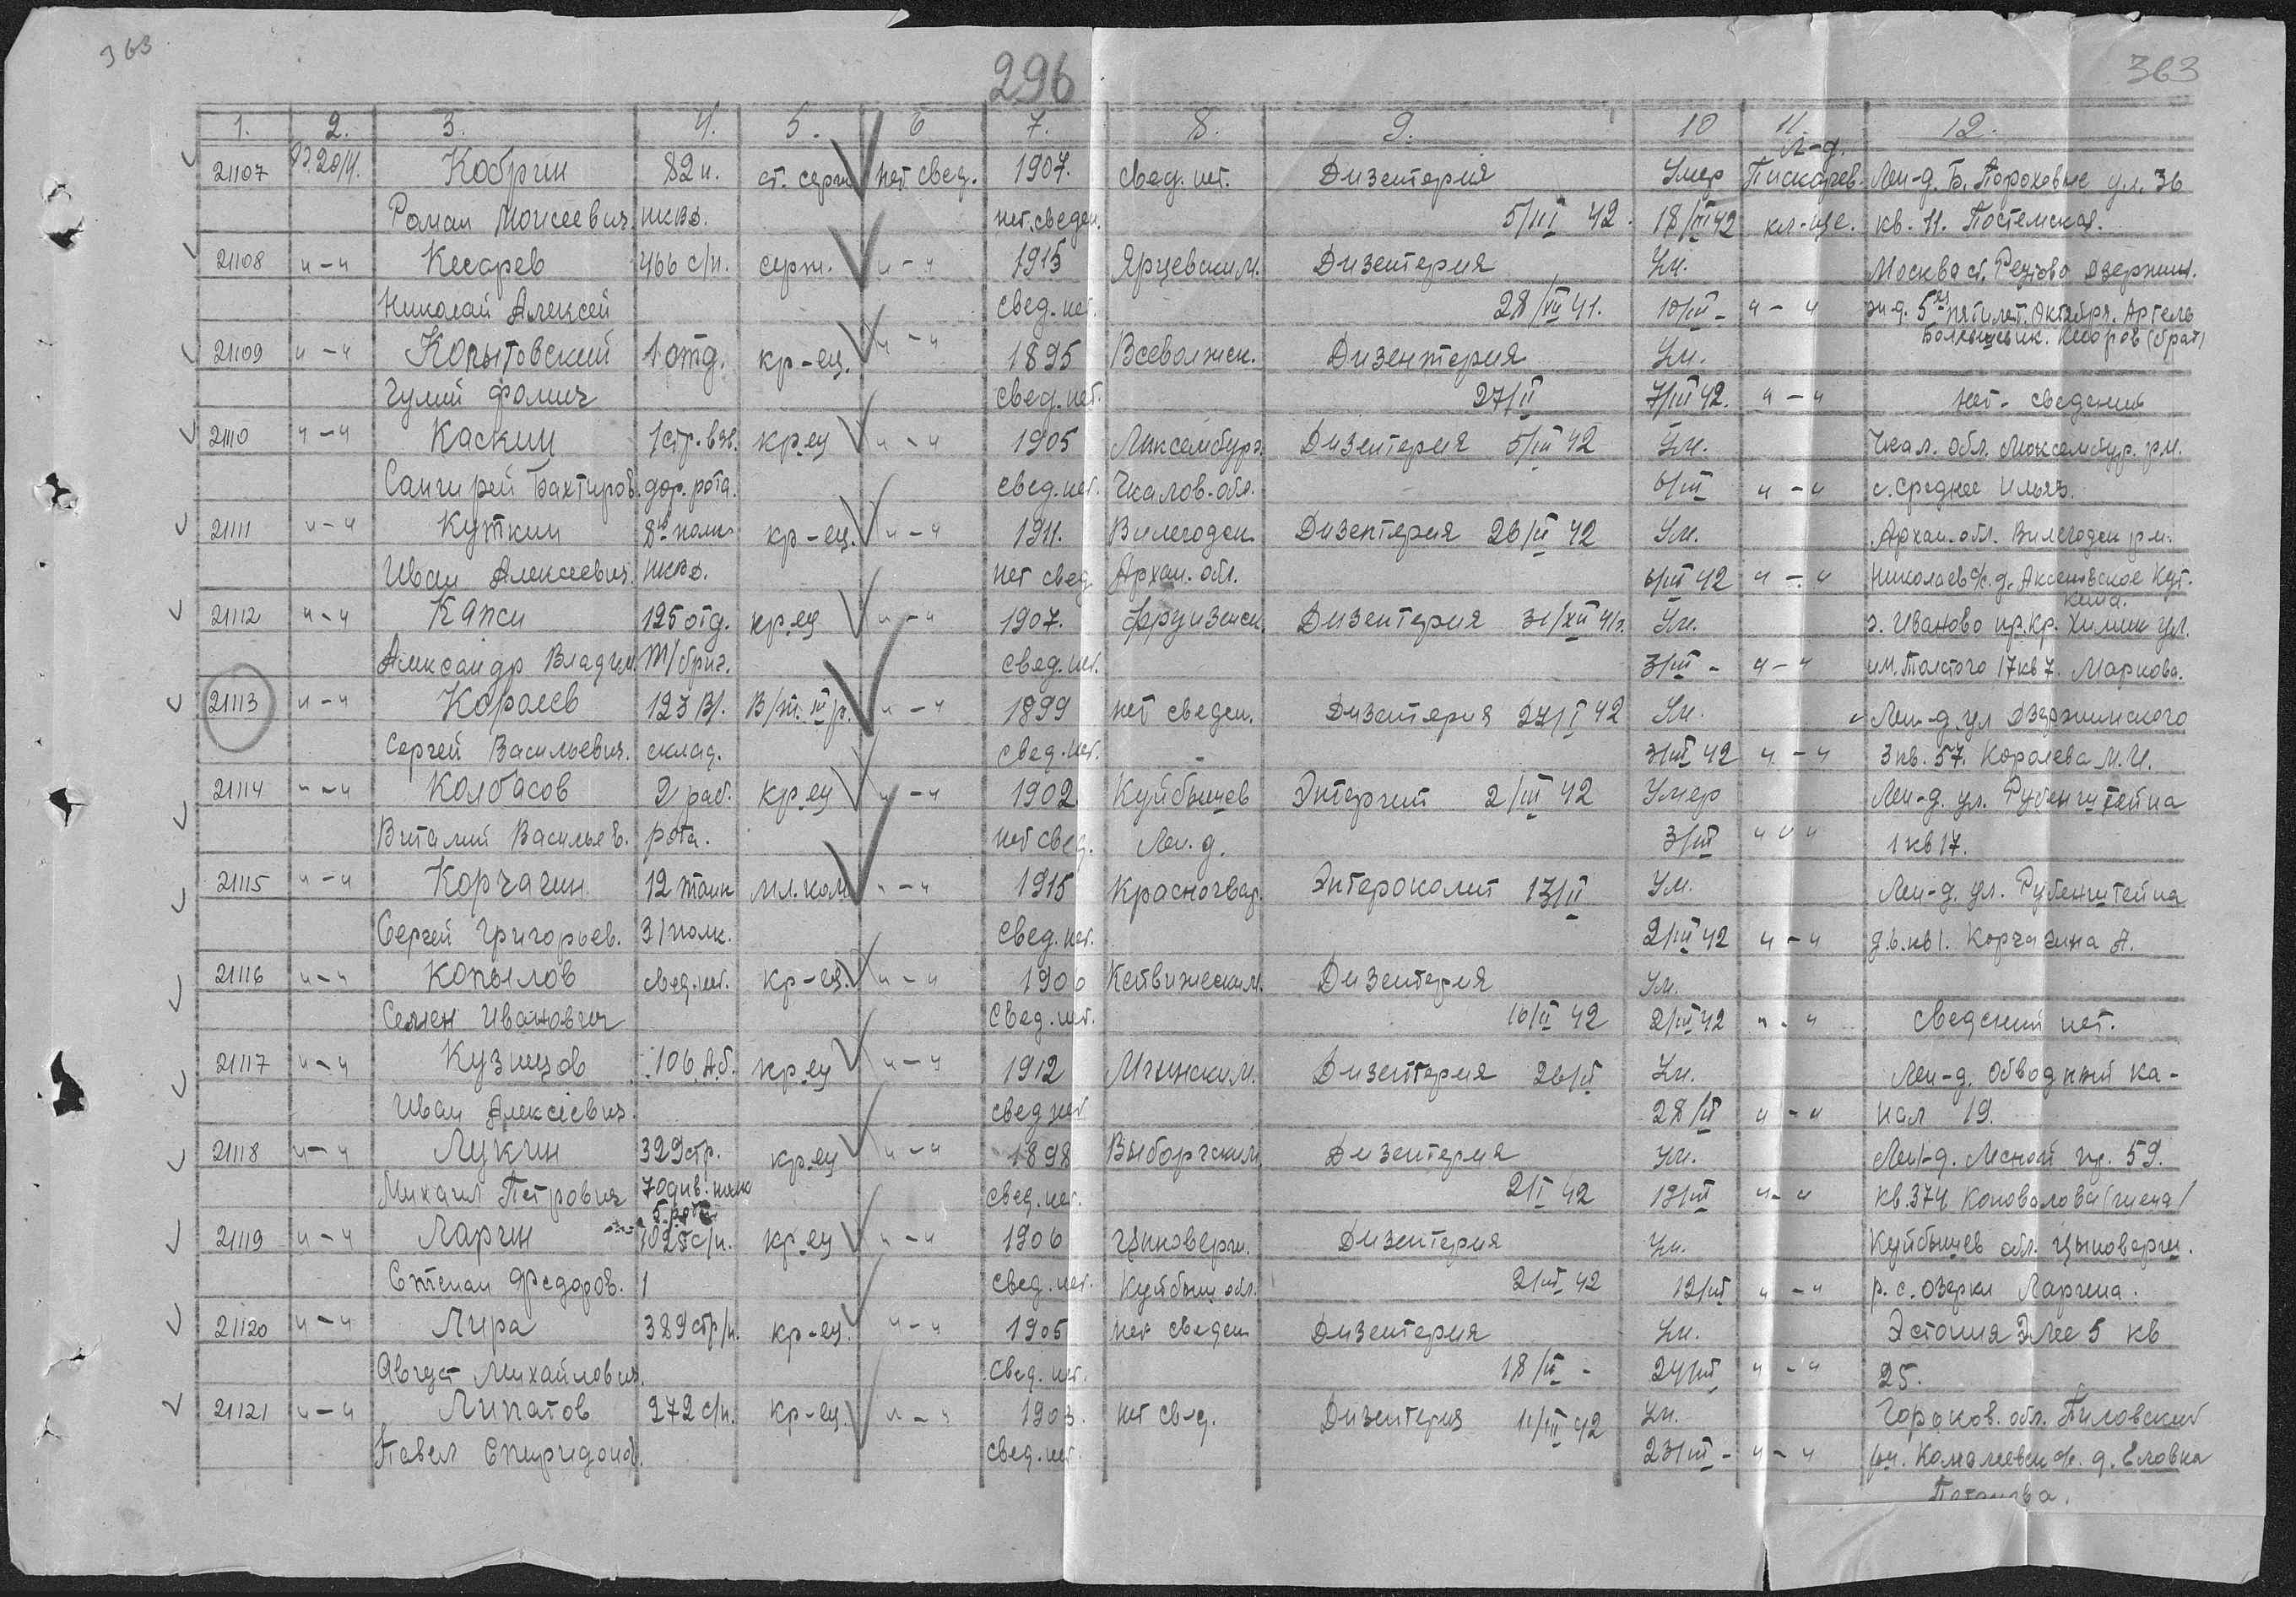 363
296
363
1. 2. 3. 4. 5. 6 7. 8. 9. 10 11. 12.
Л-д.
21107 Кобрин 82 п. ст. серж нет свед. 1907. свед. нет. Дизентерия Умер Пискарев. Лен-д. Б. Пороховые ул. 36
Роман Моисеевич. НКВД. нет. сведен. 5/III 42. 18/III 42 кл-ще. кв. 11. Постемская.
21108 "-" Кесарев 466 с/п. серж. "-" 1915 Ярцевским. Дизентерия Ум. Москва ст. Реутово Дзержин.
Николай Алексей свед. нет. 28/XII 41. 10/III - "-" 5 пятилет. Октября. Артель
Большевик. (брат)
21109 "-" Копытовский 1 отд. кр-ец. "-" 1895 Всеволжск. Дизентерия Ум.
Фомич свед. нет. 27/II 7/III 42. "-" нет - сведений
21110 "-" Каскин 1 стр. взв. кр.ец "-" 1905 Дизентерия 5/III 42 Ум. Чкал. обл.
дор. рота. свед. нет. Чкалов. обл. 6/III "-" с. Среднее
21111 "-" Куткин 8й полк кр-ец. "-" 1911. Вилегоден. Дизентерия 26/II 42 Ум. Архан. обл. Вилегоден р-н.
Иван Алексеевич. НКВД. нет свед. Архан. обл. 6/III 42 "-" Николаев с/с. д. Аксеновское Кут-
кина.
21112 "-" Капси 125 отд. кр.ец "-" 1907. Фрунзенск. Дизентерия 31/XII 41г. Ум. г. Иваново пр. Кр. Химик ул.
Александр Владим. Т/бриг. свед. нет. 3/III - "-" им. Толстого 17 кв 7. Маркова.
21113 "-" Королев 123 В/. В/т. III р. "-" 1899 нет сведен. Дизентерия 27/I 42 Ум. Лен-д. ул Дзержинского
Сергей Васильевич. склад. свед. нет. 3/III 42 "-" 3 кв. 57. Королева М. И.
21114 "-" Колбасов 2 раб. кр.ец "-" 1902 Куйбышев Энтерит 2/III 42 Умер Лен-д. ул. Рубенштейна
Виталий Васильев. рота. нет свед. Лен. д. 3/III "-" 1 кв 17.
21115 "-" Корчагин 12 танк мл. ком "-" 1915 Красногвар. Энтероколит 13/II Ум. Лен-д. ул. Рубенштейна
Сергей Григорьев. 31 полк. свед. нет. 2/III 42 "-" д. 6. кв 1. Корчагина А.
21116 "-" Копылов свед. нет. кр-ец. "-" 1900 Дизентерия Ум.
Семен Иванович свед. нет. 16/II 42 2/III 42 "-" сведений нет.
21117 "-" Кузнецов 106 А.б. кр.ец "-" 1912 Мгинским. Дизентерия 26/II Ум. Лен-д. Обводный ка-
Иван Алексеевич. свед нет 28/II "-" нал 19.
21118 "-" Лукин 329 стр. кр.ец "-" 1898 Выборгским Дизентерия Ум. Лен-д. Лесной пр. 59.
Михаил Петрович 70 див. свед. нет. 2/I 42 "-" кв. 374 Коновалова (жена)
5 рота
21119 "-" Ларин 1025 с/п. кр.ец "-" 1906 Дизентерия Ум. Куйбышев обл.
Степан Федоров. свед. нет. Куйбыш обл. 2/III 42 12/III "-" р. с. Озерки Ларина.
21120 "-" Лира 389 стр/п. кр-ец. "-" 1905 нет сведен Дизентерия Ум. Эстония 5 кв
Август Михайлович. свед. нет. 18/III - 24/III "-" 25.
21121 "-" Липатов 272 с/п. кр-ец. "-" 1903. нет свед. Дизентерия 11/III 42 Ум. Горьков. обл.
Павел Спиридонов. свед. нет. 23/III - "-" д. Еловка